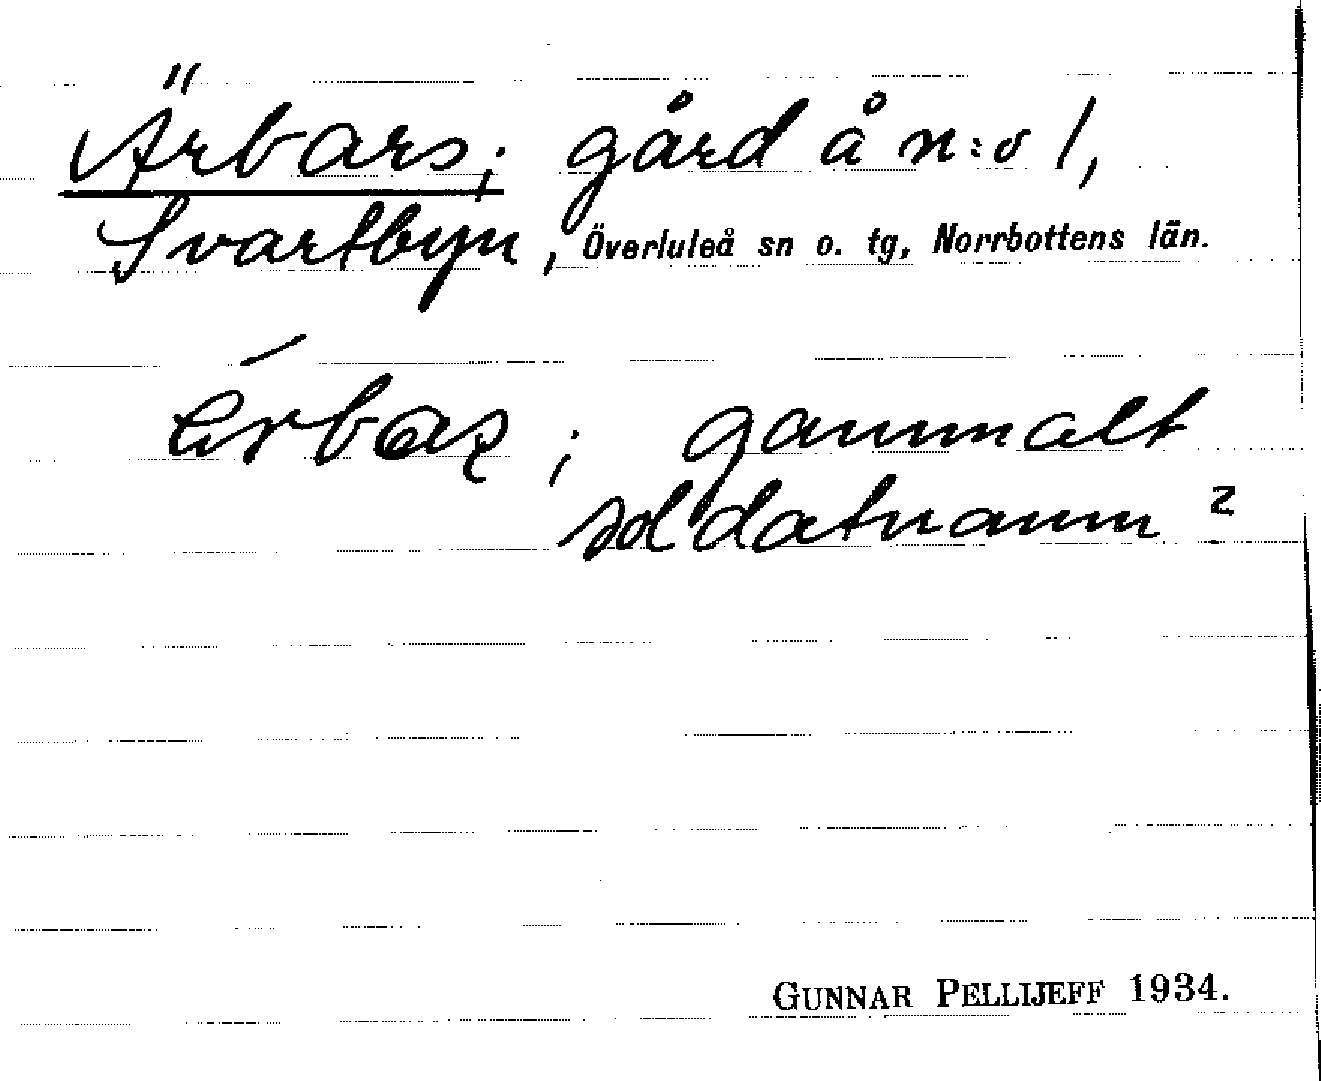 Ärbars; gård å n:o 1,
Svartbyn, Överluleå sn o. tg, Norrbottens län.
gammalt
soldatnamn ?
GUNNAR PELLIJEFF 1934.